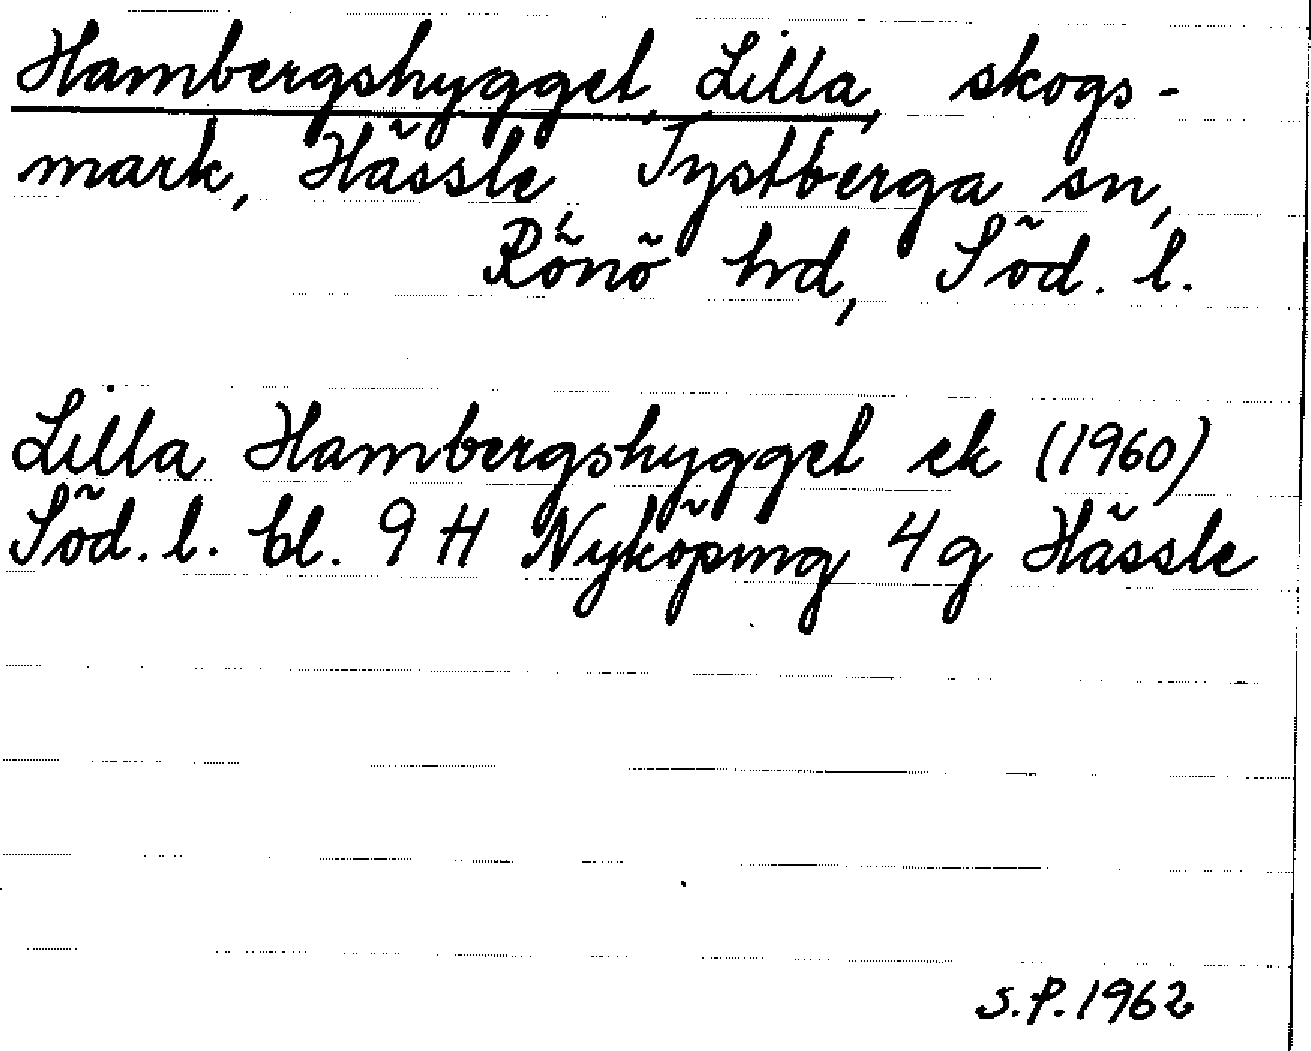 Hambergshygget, Lilla, skogs-
mark, Hässle, Tystberga sn,
Rönö hd, Söd. l.
Lilla Hambergshygget ek (1960)
Söd. l. bl. 9 H Nyköping 4 g Hässle
S.P. 1962